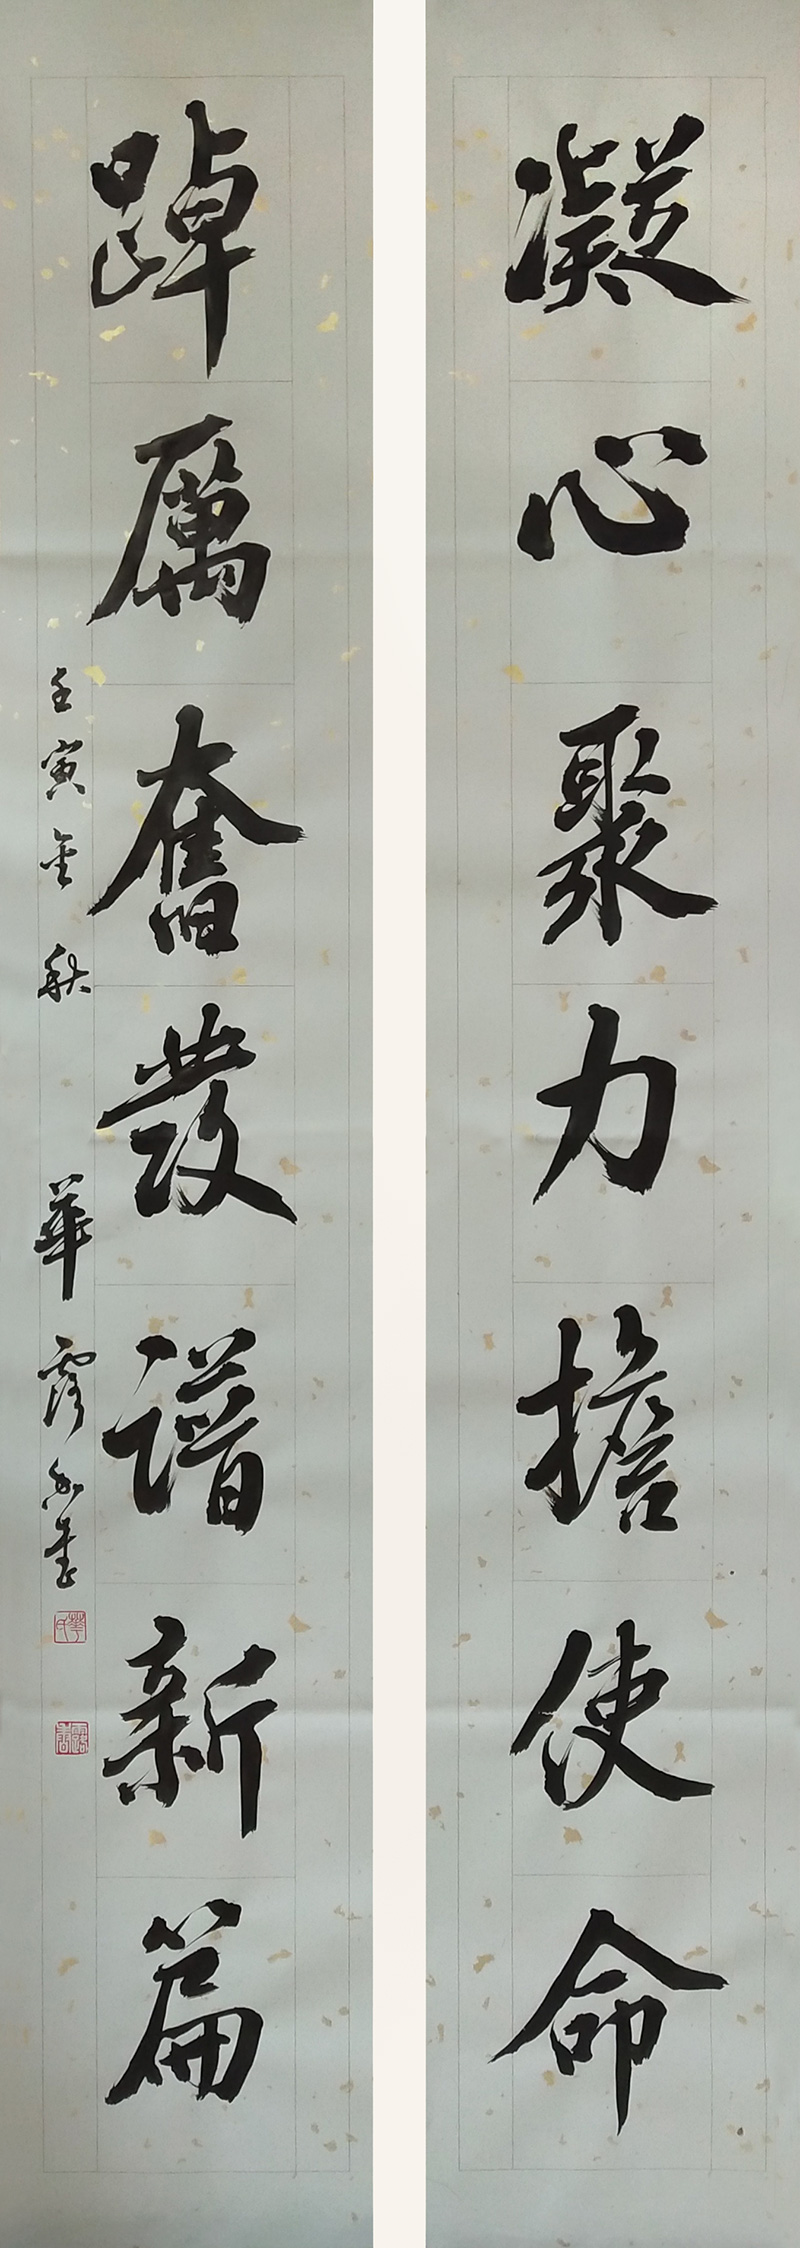 凝心聚力擔使命
踔厲奮發譜新篇
壬寅金秋 華露